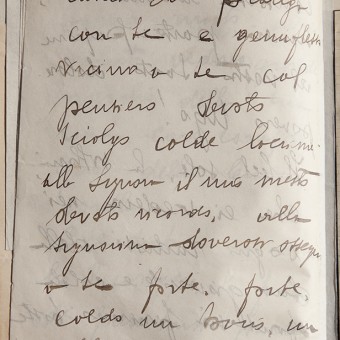 con te e genuflesso
vicino a te col
pensiero devoto
sciolgo calde lacrime.
alla Signora il mio mesto
devoto ricordo, alla
signorina doverosi ossequi
a te forte, forte,
caldo un bacio, un